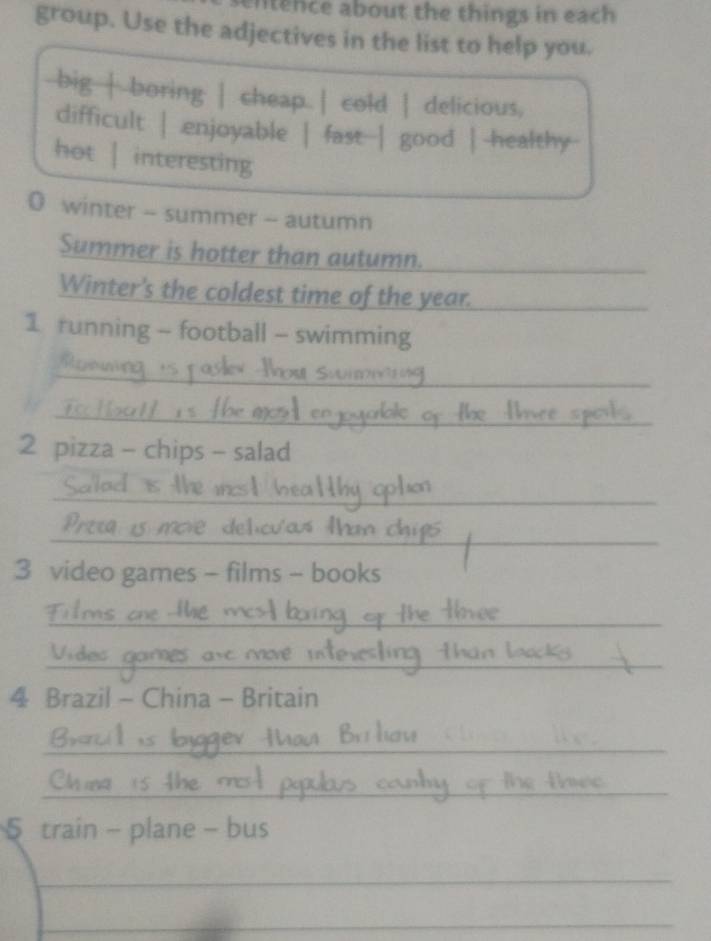 sentence about the things in each
group. Use the adjectives in the list to help you.
big | boring | cheap | cold | delicious,
difficult | enjoyable | fast | good | healthy
hot | interesting
0 winter – summer – autumn
Summer is hotter than autumn.
Winter's the coldest time of the year.
1 running – football – swimming
Running is faster than swimming
Football is the most enjoyable of the three sports
2 pizza – chips – salad
Salad is the most healthy option
Pizza is more delicious than chips
3 video games – films – books
Films are the most boring of the three
Video games are more interesting than books
4 Brazil – China – Britain
Brazil is bigger than
China is the most country of the three
5 train – plane – bus